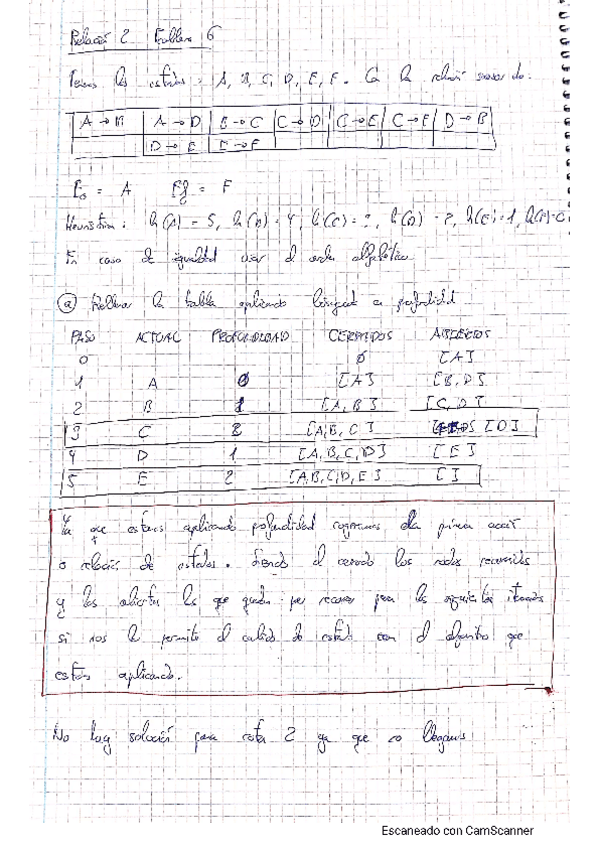 Relación 2 6
los estados: A, B, C, D, E, F. Con la
A → B A → D B → C C → D C → E C → F D → B
D → E E → F
E₀ = A Ef = F
h(A) = 5, h(B) = 4, h(C) = , h(D) = 2, h(E) = 1,
En caso de igualdad usar el orden alfabético
a) Rellenar la tabla aplicando búsqueda en profundidad
PASO ACTUAL PROFUNDIDAD CERRADOS ABIERTOS
0 ∅ [A]
1 A 0 [A] [B, D]
2 B 1 [A, B] [C, D]
3 C 2 [A, B, C] [D]
4 D 1 [A, B, C, D] [E]
5 E 2 [A, B, C, D, E] [ ]
Ya que estamos aplicando profundidad cogeremos la primera
o relación de estados. Siendo el cerrado los nodos recorridos
y los abiertos los que quedan por recorrer para las siguientes iteraciones
si nos lo permite el de estado con el algoritmo que
estamos aplicando.
No hay solución para cota 2 ya que no llegamos
Escaneado con CamScanner